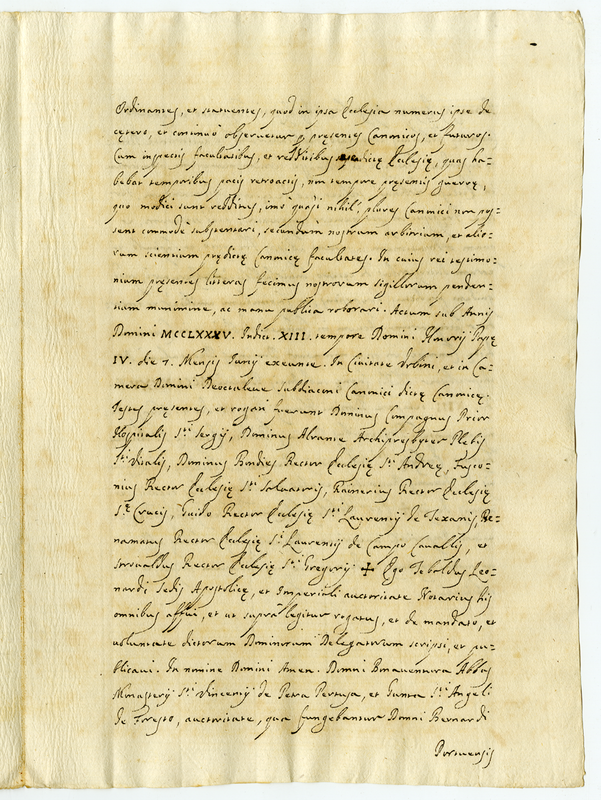 Ordinantes, et statuentes, quod in ipsa Ecclesia numerus ipse de
cętero, et continuò observetur p pręsentes Canonicos, et futuros.
Cum inspectis facultatibus, et redditibus dictę Ecclesię, quas ha-
bebat temporibus pacis retroactis, non tempore pręsentis guerrę,
quo modici sunt redditus, imò quasi nihil, plures Canonici non pos-
sent commodè substentari, secundum nostrum arbitrium, et alio-
rum scientium prędictę Canonicę facultates. In cuius rei testimo-
nium pręsentes litteras fecimus nostrorum sigillorum penden-
tium munimine, ac manu publica roborari. Actum sub Annis
Domini MCCLXXXV. Indict. XIII. tempore Domini Honorij Papę
IV. die 7. Mensis Junij exeunte. In Civitate Urbini, et in Ca-
mera Domini Deoctaleve Subdiaconi Canonici dictę Canonicę.
Testes pręsentes, et rogati fuerunt Dominus Compagnus Prior
Hospitalis Sti Sergij, Dominus Alvante Archipresbyter Plebis
Sti Vitalis, Dominus Bondies Rector Ecclesię Sti Andreę, Fusco-
nius Rector Ecclesię Sti Salvatoris, Rainerius Rector Ecclesię
Stę Crucis, Guido Rector Ecclesię Sti Laurentij de Texanis, Be-
namatus Rector Ecclesię Sti Laurentij de Campo Cavallis, et
Rector Ecclesię Sti Gregorij ✠ Ego Tebaldus Leo-
nardi Sedis Apostolicę, et Imperiali auctoritate Notarius his
omnibus affui, et ut supra legitur rogatus, et de mandato, et
voluntate dictorum Dominorum Delegatorum scripsi, et pu-
blicavi. In nomine Domini Amen. Domni Bonaventura Abbas
Monasterij Sti Vincentij de Petra Pertusa, et Gunta Sti Angeli
de Foresto, auctoritate, qua fungebantur Domni Bernardi
Portuensis